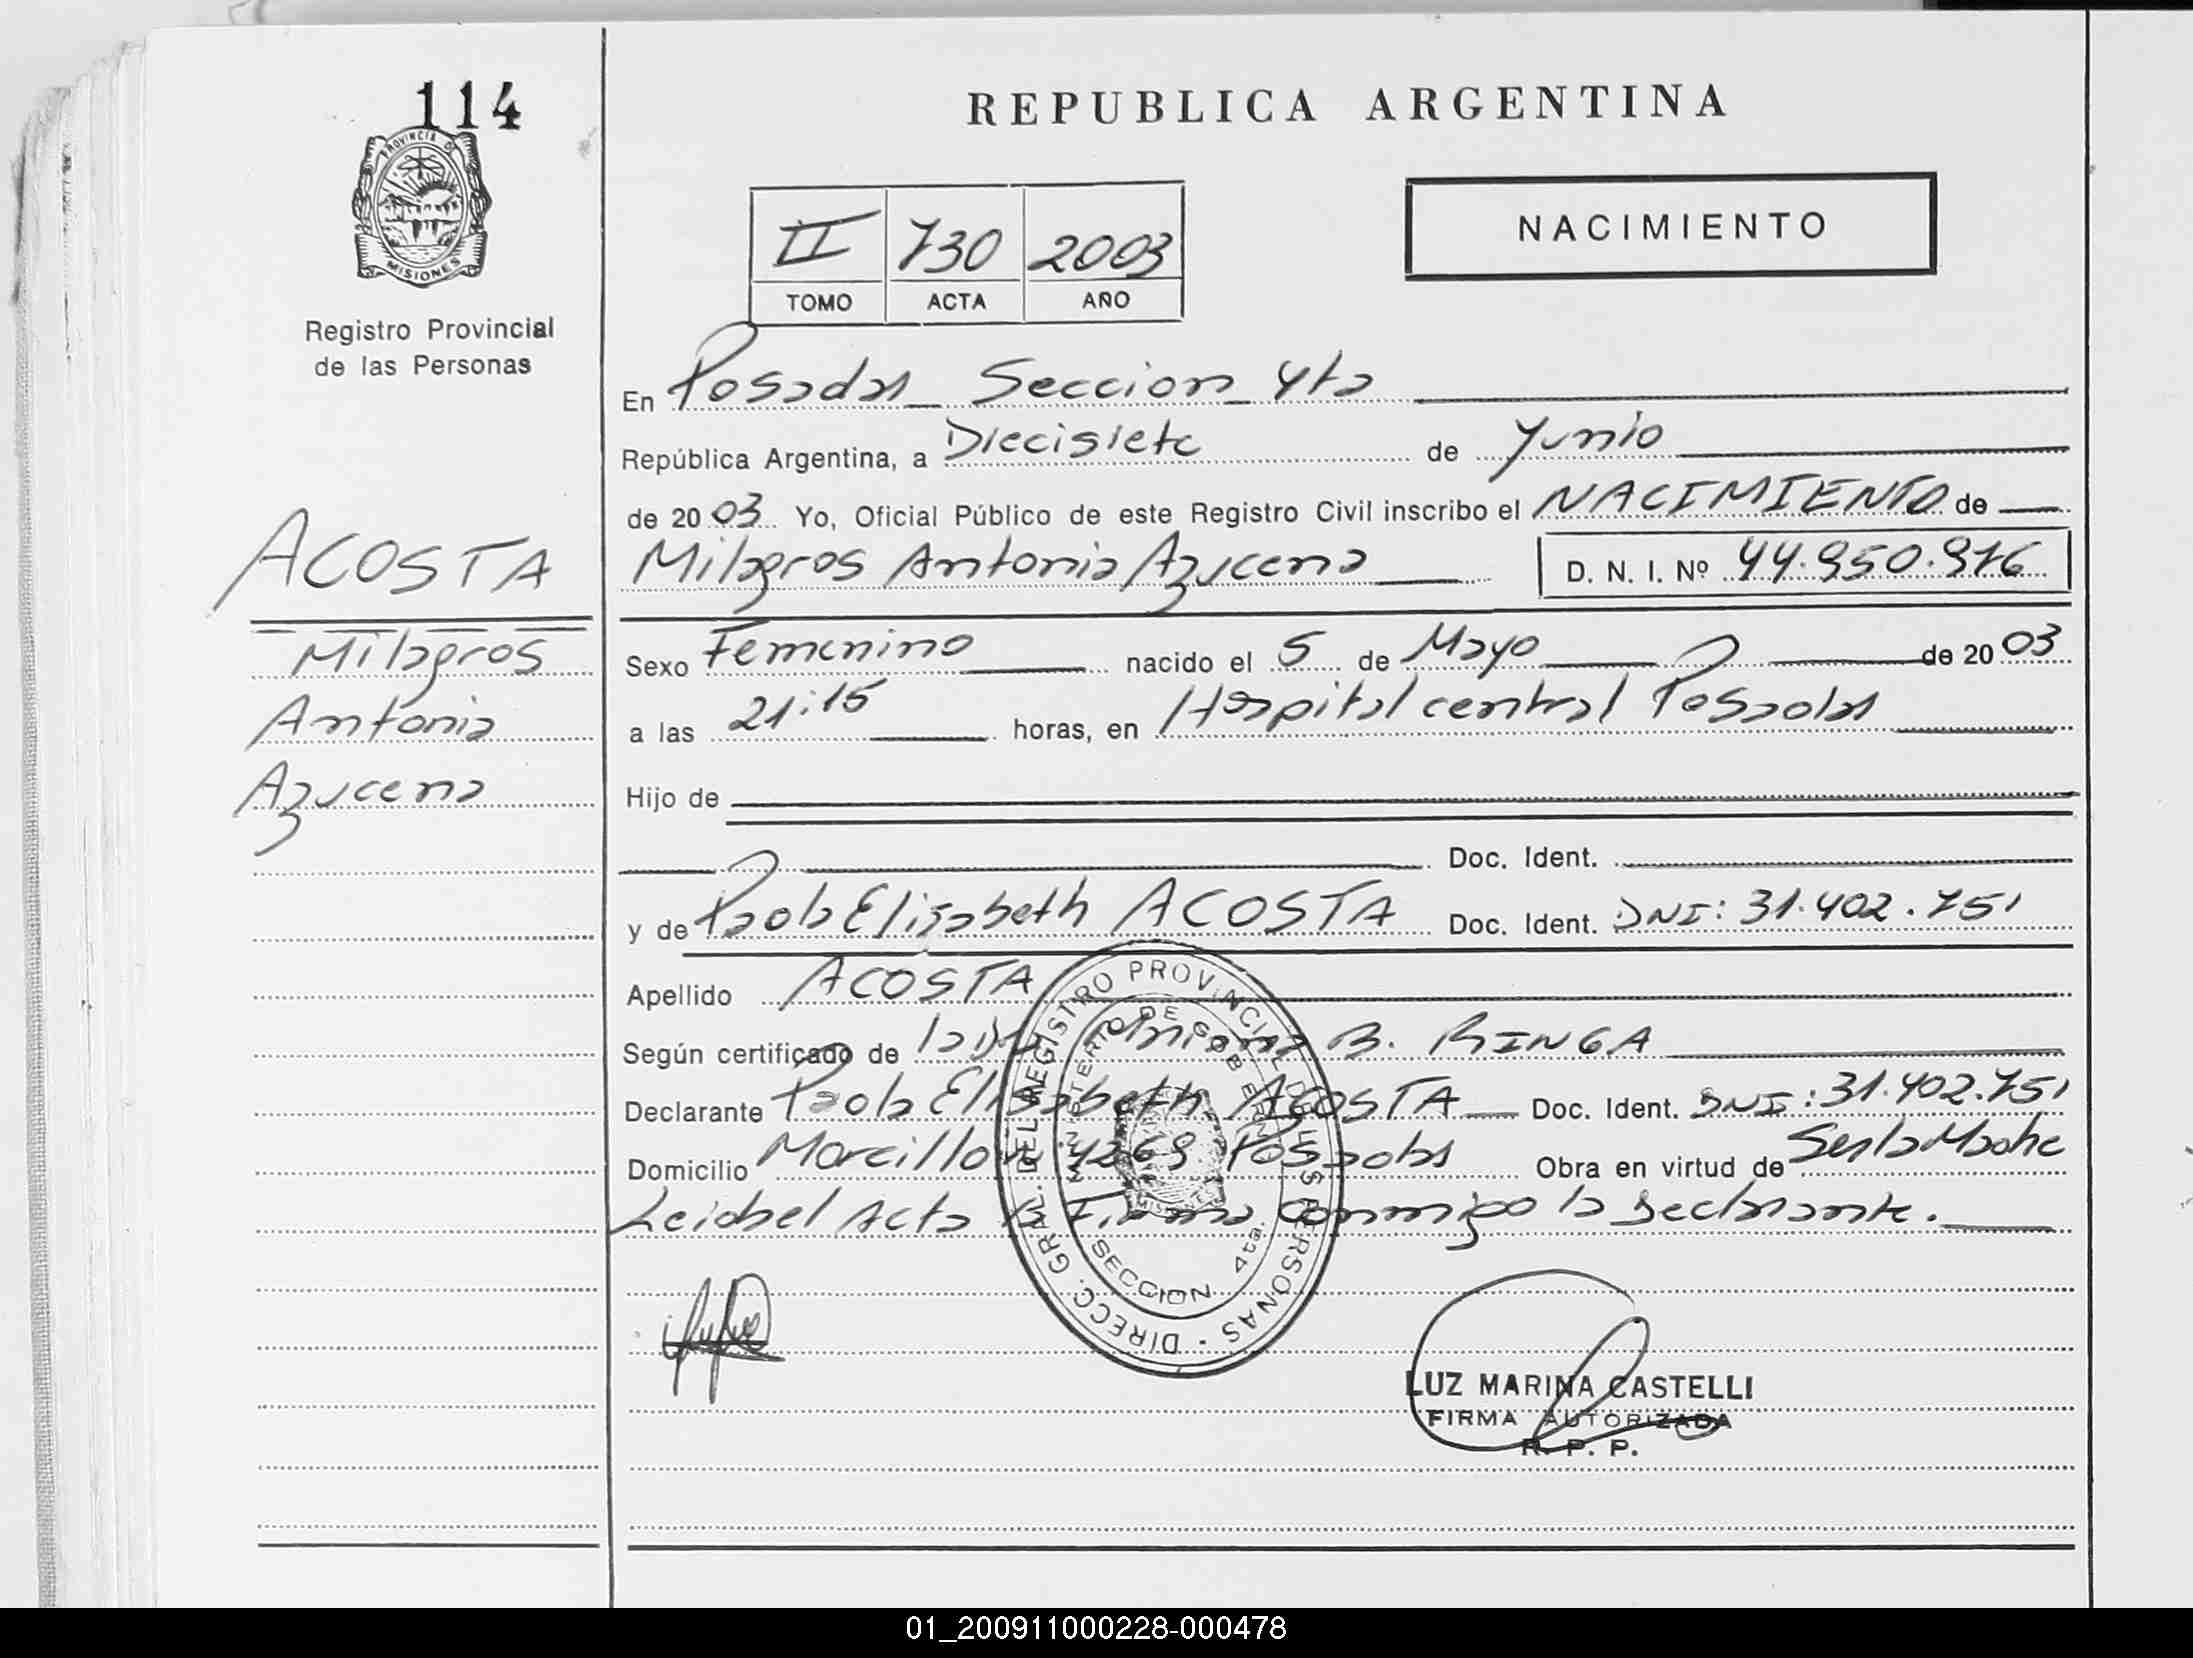 114
PROVINCIA DE
MISIONES
Registro Provincial
de las Personas
ACOSTA
Milagros
Antonia
Azucena
REPUBLICA ARGENTINA
II 730 2003
TOMO ACTA AÑO
NACIMIENTO
En Posadas Seccion 4ta
República Argentina, a Diecisiete de Junio
de 2003 Yo, Oficial Público de este Registro Civil inscribo el NACIMIENTO de
Milagros Antonia Azucena D. N. I. Nº 44.950.976
Sexo Femenino nacido el 5 de Mayo de 2003
a las 21:15 horas, en Hospital central Posadas
Hijo de
Doc. Ident.
y de Paola Elizabeth ACOSTA Doc. Ident. DNI: 31.402.751
Apellido ACOSTA
Según certificado de la Dra B. RINGA
Declarante Paola Elizabeth ACOSTA Doc. Ident. DNI: 31.402.751
Domicilio Posadas Obra en virtud de Ser la Madre
Leida el Acta la Firma conmigo la declarante.
DIRECC. GRAL. DEL REGISTRO PROVINCIAL DE LAS PERSONAS -
MINISTERIO DE GOBIERNO
MISIONES
SECCION 4ta.
LUZ MARINA CASTELLI
FIRMA AUTORIZADA
R. P. P.
01_200911000228-000478